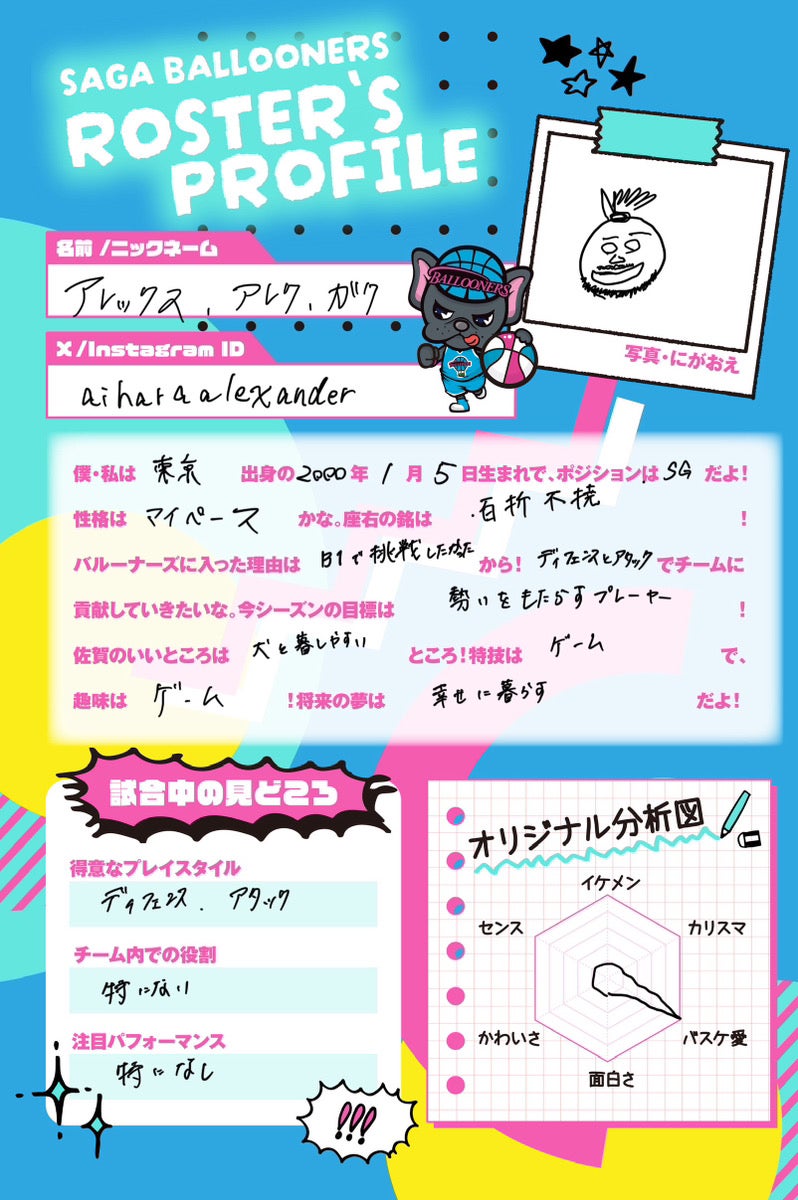 SAGA BALLOONERS
ROSTER'S
PROFILE
名前/ニックネーム
アレックス、アレク、ガク
BALLOONERS
X/Instagram ID
aiharaalexander
写真・にがおえ
僕・私は 東京 出身の2000年 1月 5日生まれで、ポジションは SG だよ!
性格は マイペース かな。座右の銘は 百折不撓 !
バルーナーズに入った理由は B1で挑戦したかった から! ディフェンスとアタック でチームに
貢献していきたいな。今シーズンの目標は 勢いをもたらすプレーヤー !
佐賀のいいところは 犬と暮しやすい ところ!特技は ゲーム で、
趣味は ゲーム !将来の夢は 幸せに暮らす だよ!
試合中の見どころ
得意なプレイスタイル
ディフェンス、アタック
チーム内での役割
特にない
注目パフォーマンス
特になし
!!!
オリジナル分析図
イケメン
センス カリスマ
かわいさ バスケ愛
面白さ